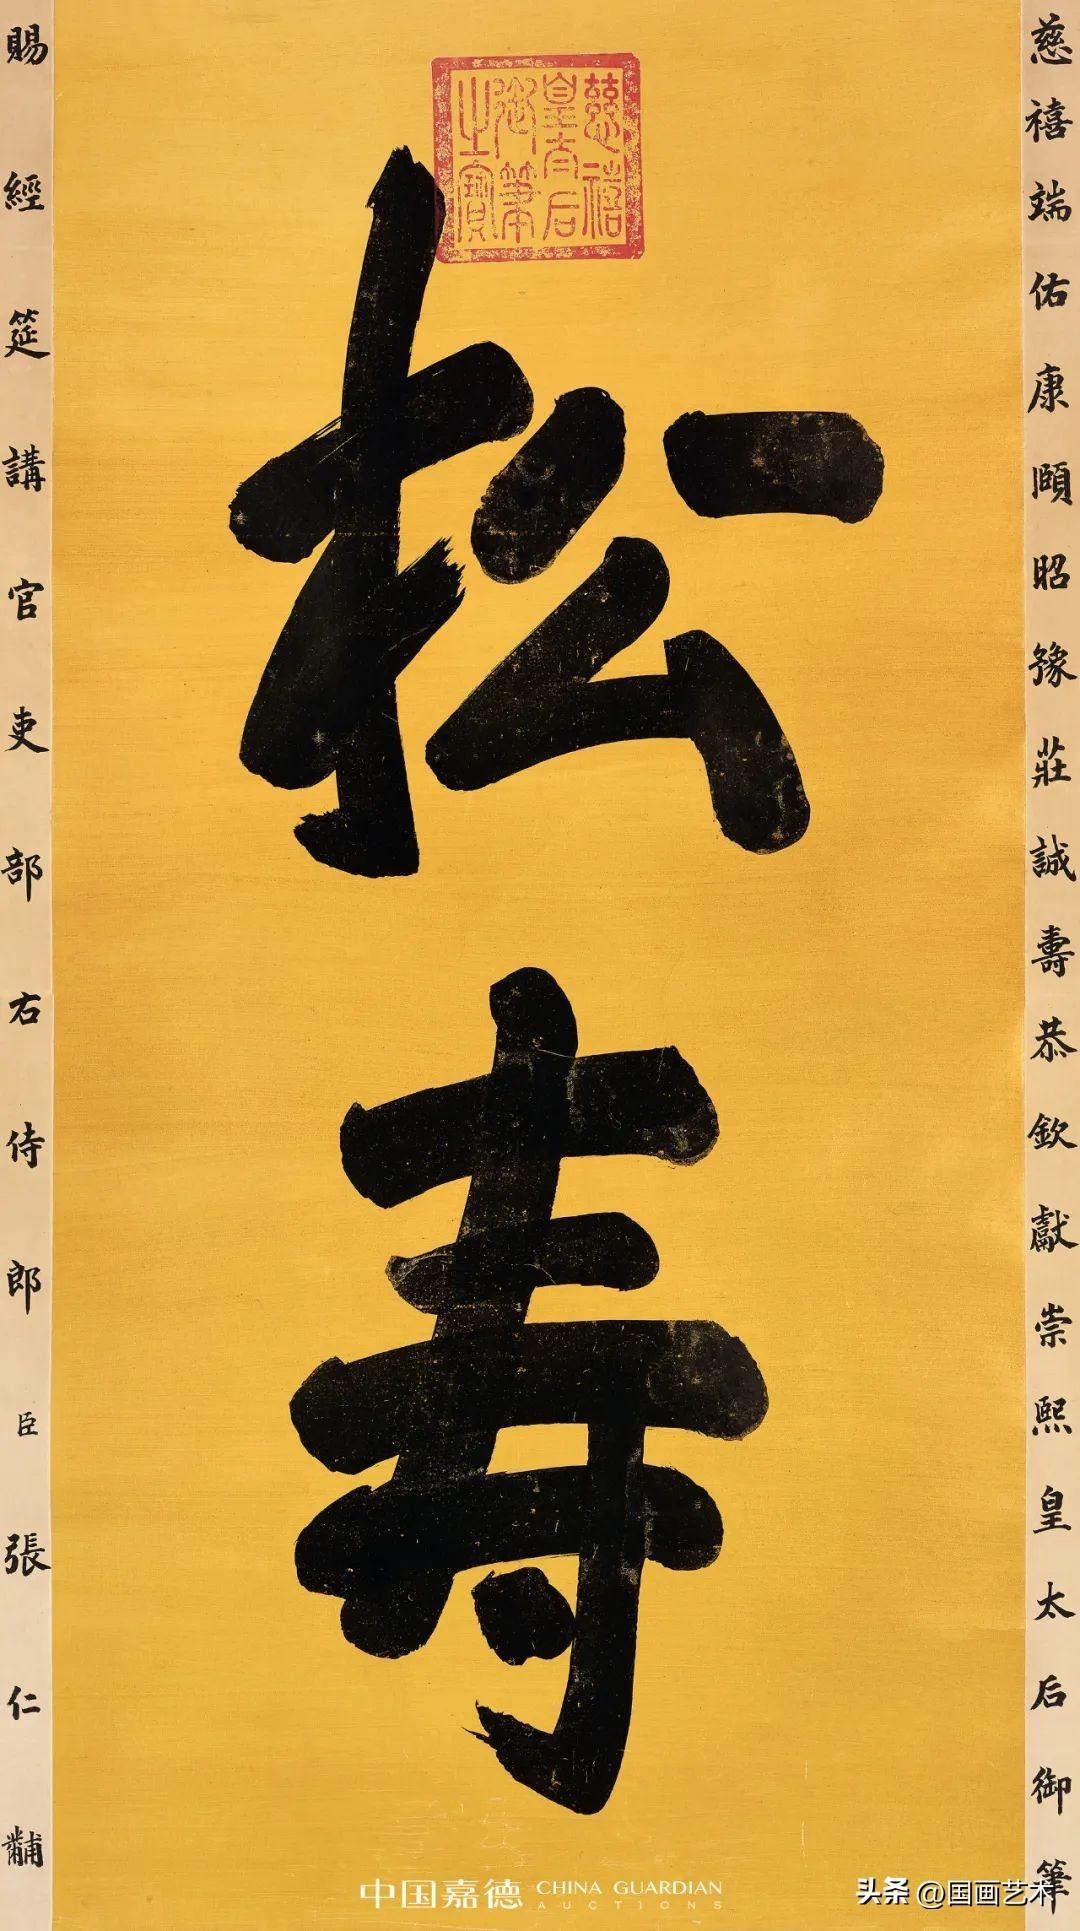 慈禧端佑康頤昭豫莊誠壽恭欽獻崇熙皇太后御筆
慈禧
皇太后
御筆
之寶
松寿
賜經筵講官吏部右侍郎臣張仁黼
中国嘉德 CHINA GUARDIAN
AUCTIONS
头条 @国画艺术